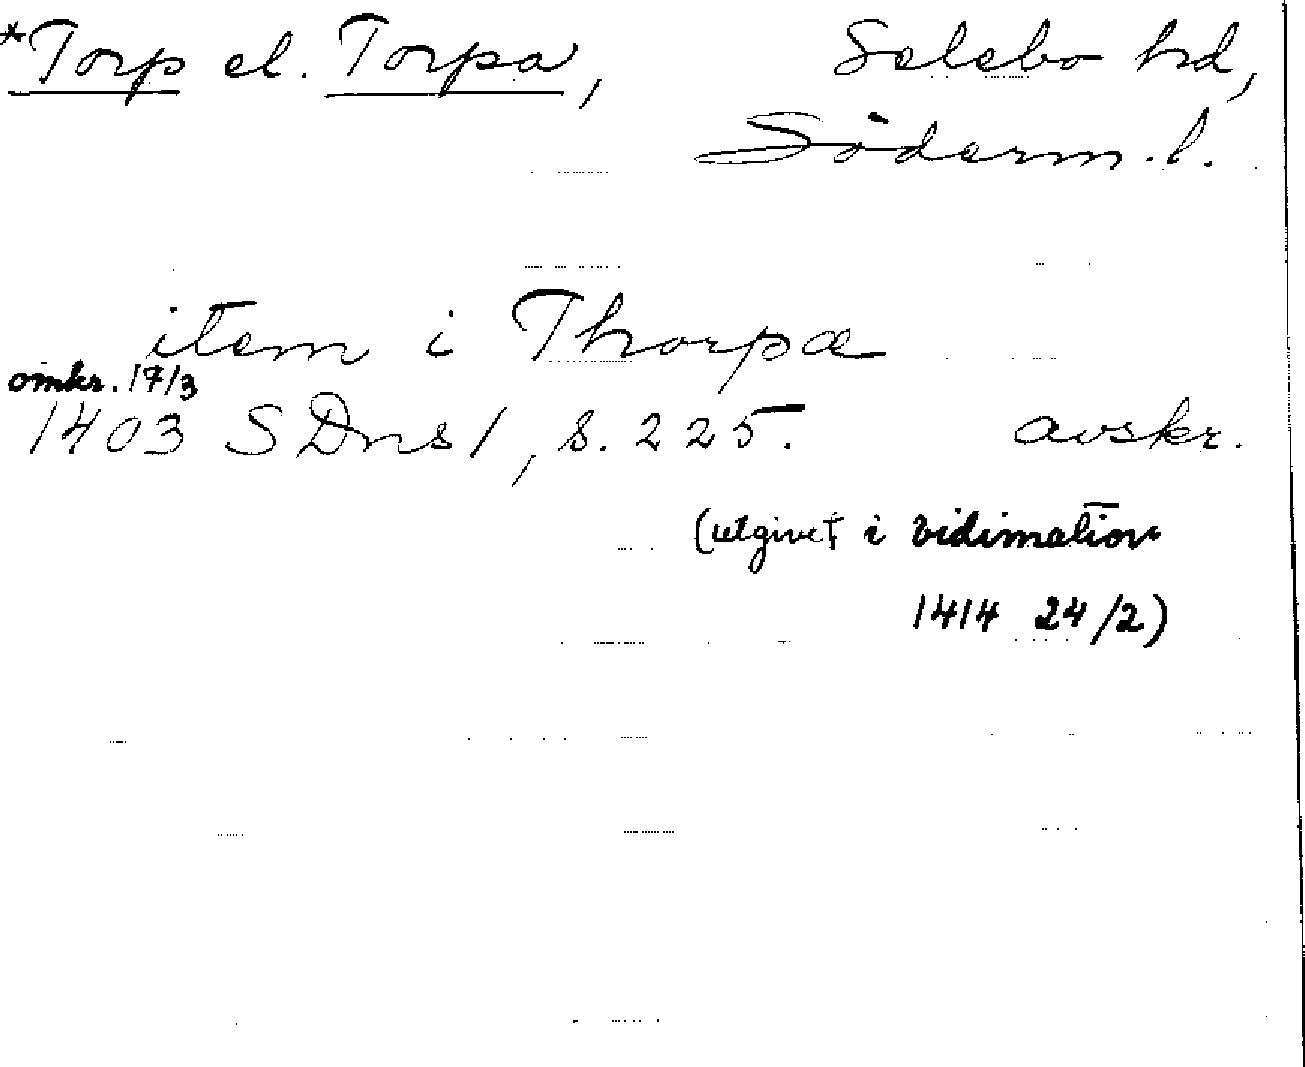 *Torp el. Torpa, Selebo hd,
Söderm.l.
item i Thorpæ
omkr. 17/3
1403 SDns1, s. 225. avskr.
(utgivet i vidimation
1414 24/2)